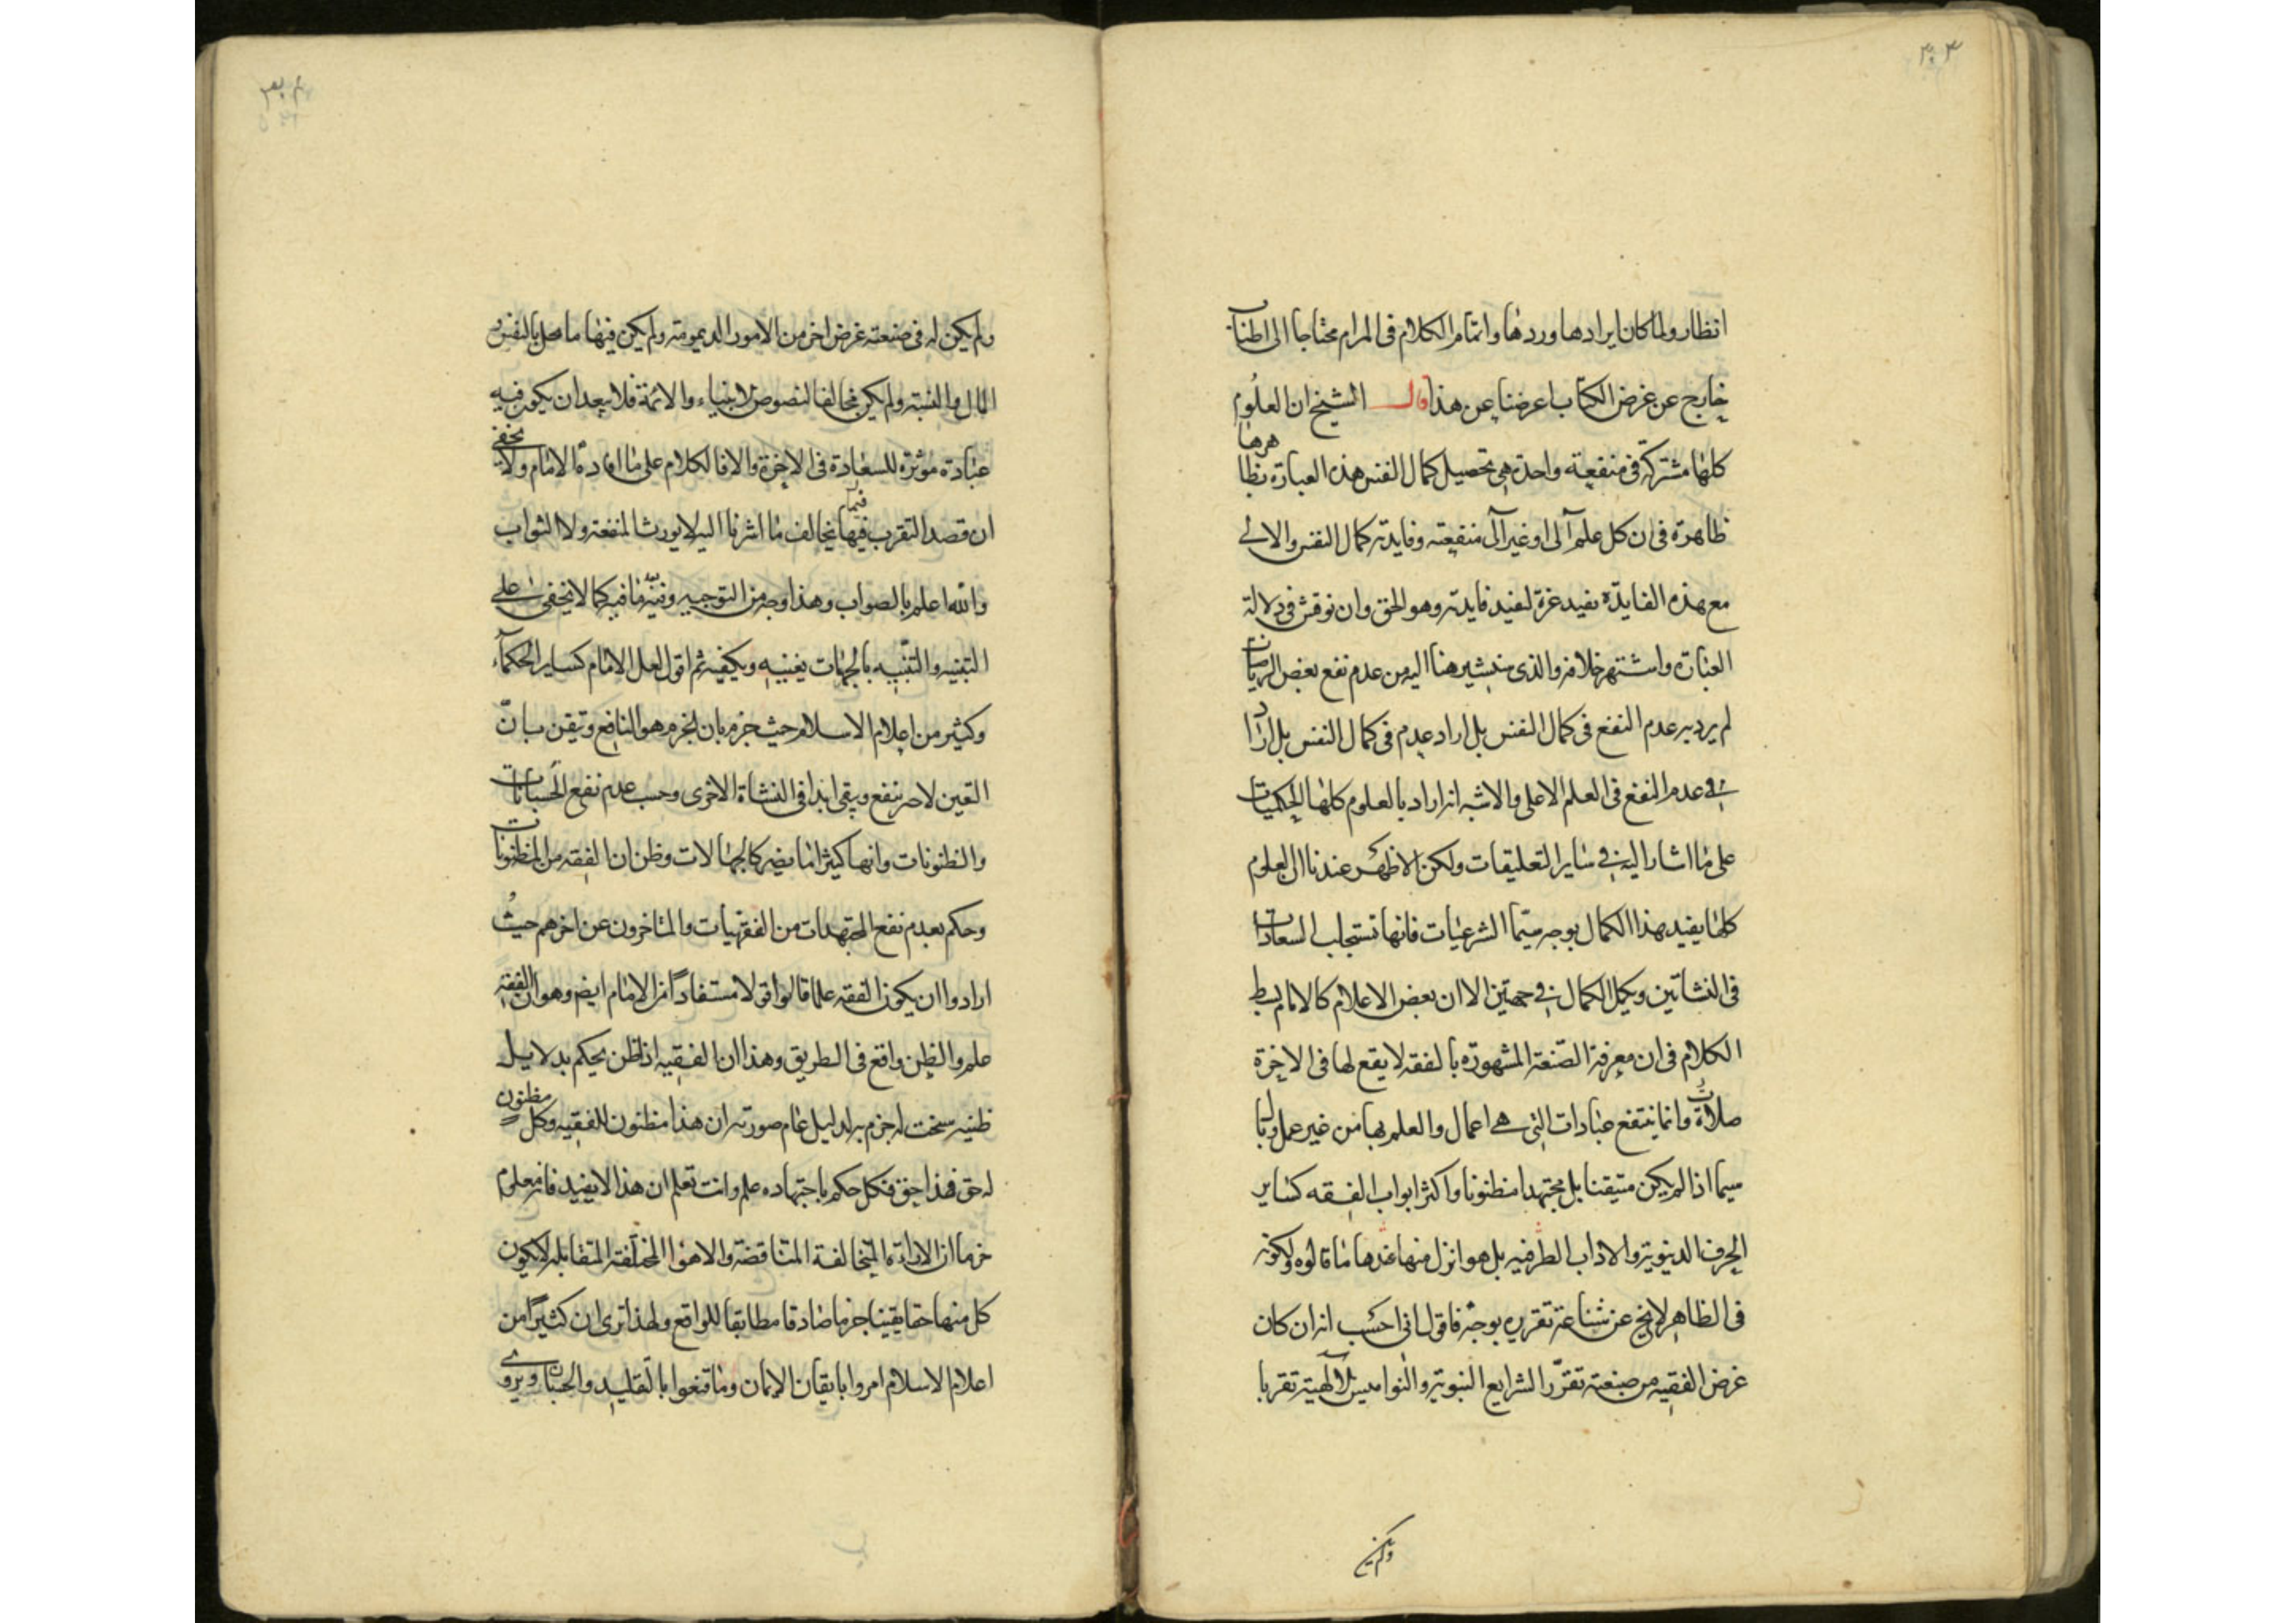 انظار ولما كان ايرادها وردها واتمام الكلام فى المرام محتاجا الى اطناب
خارج عن غرض الكتاب اعرضنا عن هذا قال الشيخ ان العلوم
كلها مشتركة فى منفعة واحدة هى تحصيل كمال النفس هذه العبارة بظاهرها
ظاهرة فى ان كل علم آلى او غير آلى منفعته وفايدته كمال النفس والالے
مع هذه الفايدة يفيد غرة لفيد فايدته وهو الحق وان نوقش فى دلالة
العبارة واشتهر خلافه والذى سيشير هنا اليه من عدم نفع بعض الرياضيات
لم يرد به عدم النفع فى كمال النفس بل اراد عدم فى كمال النفس بل اراد
فى عدم النفع فى العلم الاعلى والاشبه انه اراد بالعلوم كلها الحكميات
على ما اشار اليه فى ساير التعليقات ولكن الاظهر عندنا ان العلوم
كلها يفيد هذا الكمال بوجه سيما الشرعيات فانها تستجلب السعادات
فى النشاتين ويكمل الكمال فى جهتين الا ان بعض الاعلام كالامام بسط
الكلام فى ان معرفة الصنعة المشهورة بالفقه لا يقع لها فى الاخرة
صلاة وانما ينتفع عبادات التى هے اعمال والعلم بها من غير عمل وبال
سيما اذا لم يكن متيقنا بل مجتهدا مظنونا واكثر ابواب الفقه كساير
الحرف الدنيوية والاداب الطرفيه بل هو انزل منها عندها ما قالوه ولكونه
فى الظاهر لا ينج عن شناعة تقرره بوجه فاقول انى احسب انه ان كان
غرض الفقيه من صنعته تقرر الشرايع النبوية والنواميس الالهية تقربا
ولم يكن
ولم يكن له فى صنعته غرض اخر من الامور الديموية ولم يكن فيها ما محل بالنفس و
المال والنسبة ولم يكن مخالفا لنصوص الانبياء والائمة فلا يبعد ان يكون فيه
عبادته موثرة للسعادة فى الاخرة والا فالكلام على ما افاده الامام ولا يخفى
ان قصد التقرب فيها فيما يخالف ما اشرنا اليه لا يورث المنفعة ولا الثواب
والله اعلم بالصواب وهذا وجه من التوجيه وفيه ما فيه كما لا يخفى على
التبنيه والتنبيه بالجهات يغنيه ويكفيه ثم اقول لعل الامام كساير الحكمآء
وكثير من اعلام الاسلام حيث جزم بان الجزم هو النافع وتيقن بانّ
اليقين لا حر ينفع ويبقى ابدا فى النشاة الاخرى وحسب عدم نفع الحسبانات
والظنونات وانها كثيرا ما يضر كالجهالات وظن ان الفقه من المظنونات
وحكم بعدم نفع المجتهدات من الفقهيات والمتاخرون عن اخرهم حيث
ارادوا ان يكون الفقه علما قالوا قولا مستفادا من الامام ايضا وهو ان الفقه
علم والظن واقع فى الطريق وهذا ان الفقيه اذا ظن بحكم بدلايل
ظنيه سخت له جزم به لدليل عام صورته ان هذا مظنون للفقيه وكل مظنون
له حق فهذا حق فكل حكم باجتهاده علم وانت تعلم ان هذا لا يفيد فانه معلوم
جزما ان الاراء المتخالفة المتناقضة والاهوا المختلفة المتقابله لا يكون
كل منها حقا يقينا جزما صادقا مطابقا للواقع ولهذا ترى ان كثيرا من
اعلام الاسلام امروا بايقان الايمان وما قنعوا بالتقليد والحسبان ويروى